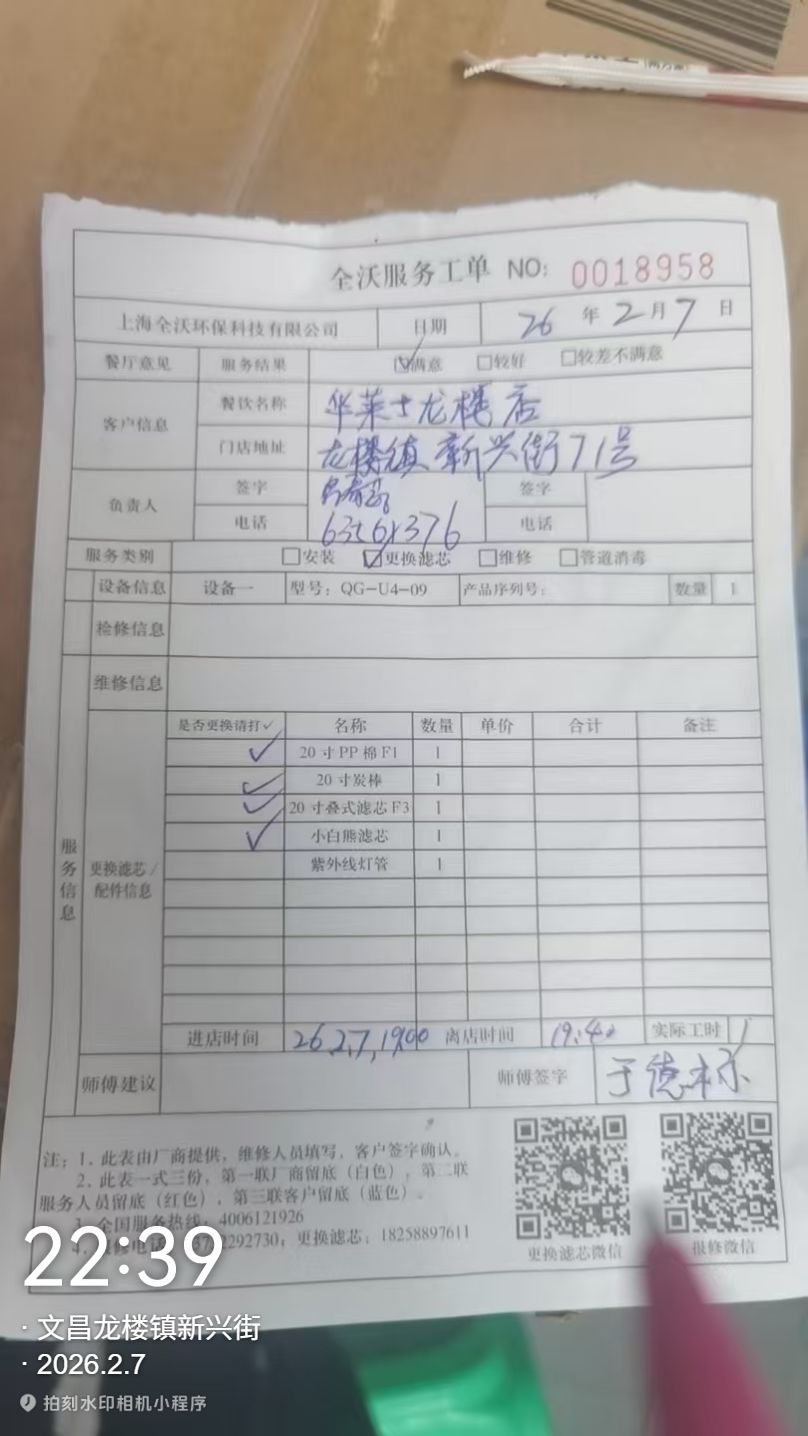 全沃服务工单 NO: 0018958
上海全沃环保科技有限公司 日期 26 年 2 月 7 日
餐厅意见 服务结果 ☑满意 □较好 □较差不满意
客户信息 餐饮名称 华莱士龙楼店
门店地址 龙楼镇新兴街71号
负责人 签字 签字
电话 电话
服务类别 □安装 ☑更换滤芯 □维修 □管道消毒
设备信息 设备一 型号：QG-U4-09 产品序列号： 数量 1
检修信息
维修信息
服务信息
更换滤芯/配件信息
是否更换请打✓ 名称 数量 单价 合计 备注
✓ 20寸PP棉F1 1
✓ 20寸炭棒 1
✓ 20寸叠式滤芯F3 1
✓ 小白熊滤芯 1
紫外线灯管 1
进店时间 26.2.7,19:00 离店时间 19:42 实际工时 1
师傅建议 师傅签字 于德标
注：1、此表由厂商提供，维修人员填写，客户签字确认。
2、此表一式三份，第一联厂商留底（白色），第二联
服务人员留底（红色），第三联客户留底（蓝色）。
3、全国服务热线：4006121926
4、报修电话 2292730；更换滤芯：18258897611
更换滤芯微信 报修微信
22:39
· 文昌龙楼镇新兴街
· 2026.2.7
拍刻水印相机小程序